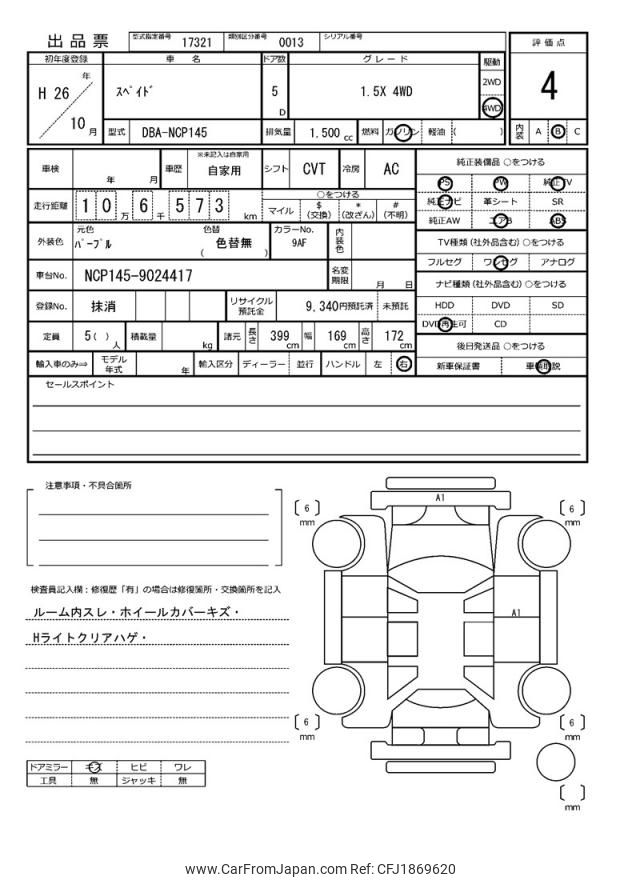 出品票 型式指定番号 17321 類別区分番号 0013 シリアル番号
評価点
4
内装 A B C
初年度登録 車名 ドア数 グレード 駆動
H 26 年 10 月
ｽﾍﾟｲﾄﾞ 5 D 1.5X 4WD
2WD
4WD
型式 DBA-NCP145 排気量 1.500 cc 燃料 ガソリン 軽油 ( )
車検 年 月 車歴 ※未記入は自家用 自家用 シフト CVT 冷房 AC
走行距離 1 0 万 6 千 5 7 3 km
○をつける
マイル $(交換) *(改ざん) #(不明)
外装色 元色 ﾊﾟｰﾌﾟﾙ 色替 ( 色替無 ) カラーNo. 9AF 内装色
車台No. NCP145-9024417 名変期限 月 日
登録No. 抹消 リサイクル預託金 9,340円預託済 未預託
定員 5( )人 積載量 kg 諸元 長さ 399 cm 幅 169 cm 高さ 172 cm
輸入車のみ⇒ モデル年式 年 輸入区分 ディーラー 並行 ハンドル 左 右
純正装備品 ○をつける
PS PW 純正TV
純正ナビ 革シート SR
純正AW エアB ABS
TV種類(社外品含む)○をつける
フルセグ ワンセグ アナログ
ナビ種類(社外品含む)○をつける
HDD DVD SD
DVD再生可 CD
後日発送品 ○をつける
新車保証書 車輌取説
セールスポイント
注意事項・不具合箇所
検査員記入欄：修復歴「有」の場合は修復箇所・交換箇所を記入
ルーム内スレ・ホイールカバーキズ・
Hライトクリアハゲ・
ドアミラー キズ ヒビ ワレ
工具 無 ジャッキ 無
A1
[ 6 ] mm
[ 6 ] mm
A1
[ 6 ] mm
[ 6 ] mm
[ ] mm
www.CarFromJapan.com Ref: CFJ1869620